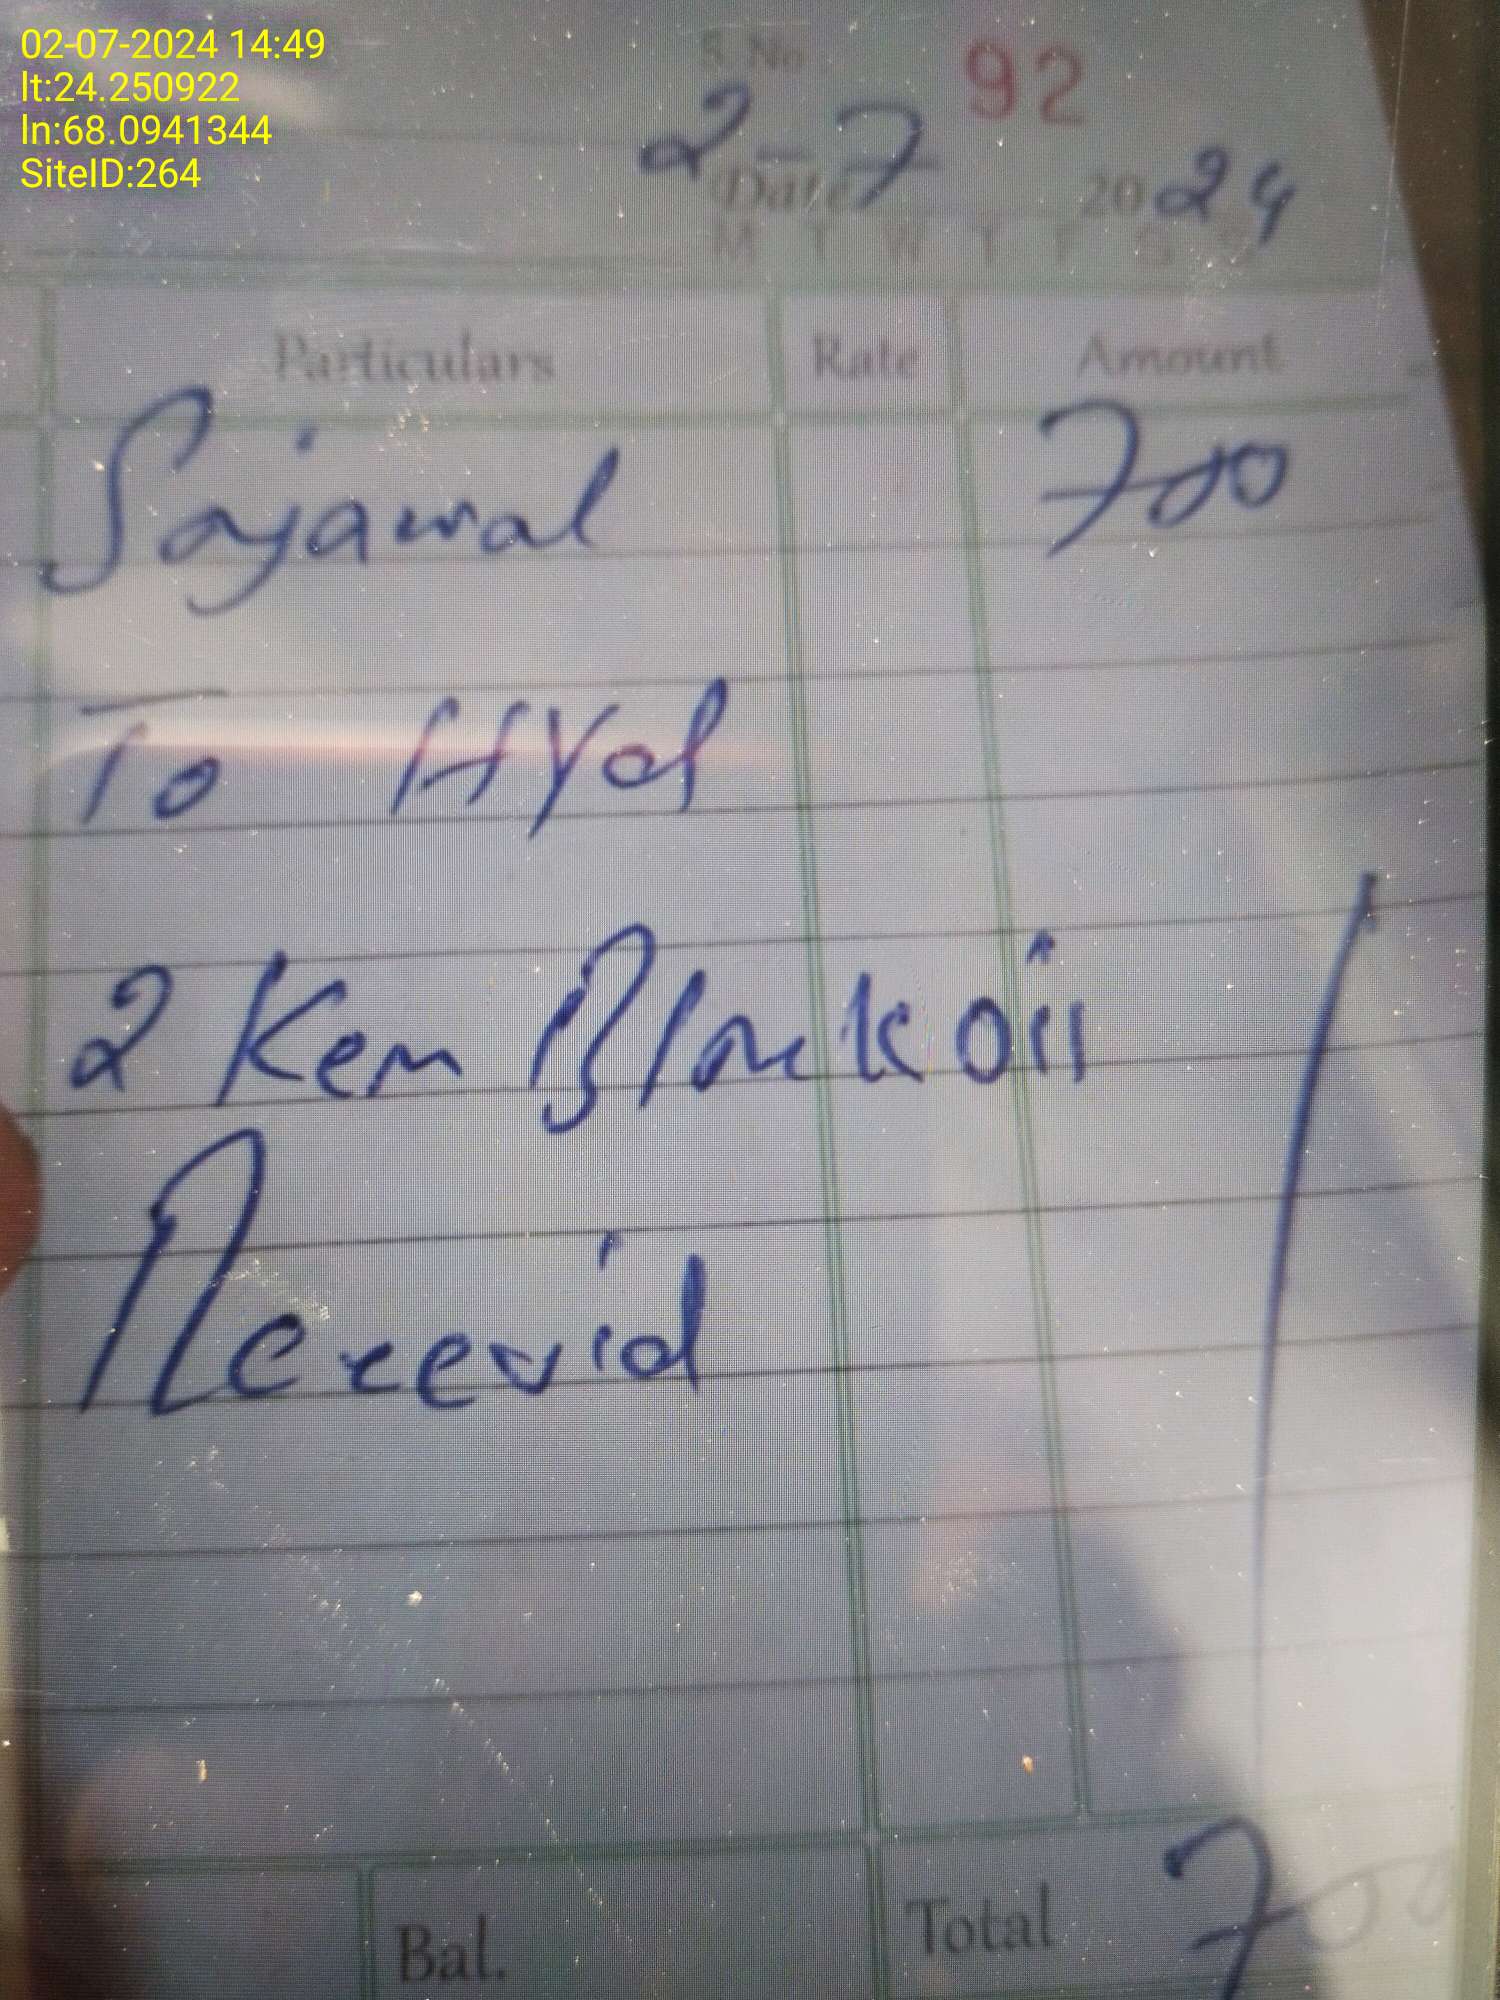 02-07-2024 14:49
lt:24.250922
ln:68.0941344
SiteID:264
S.No 92
Date 2-7 2024
M T W T F S
Particulars Rate Amount
Sajawal 700
To HYd
2 Ken Black oil
Recevid
Bal. Total 700